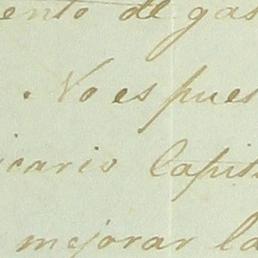 ento de gas
. No es pues
icario Capit
mejorar la